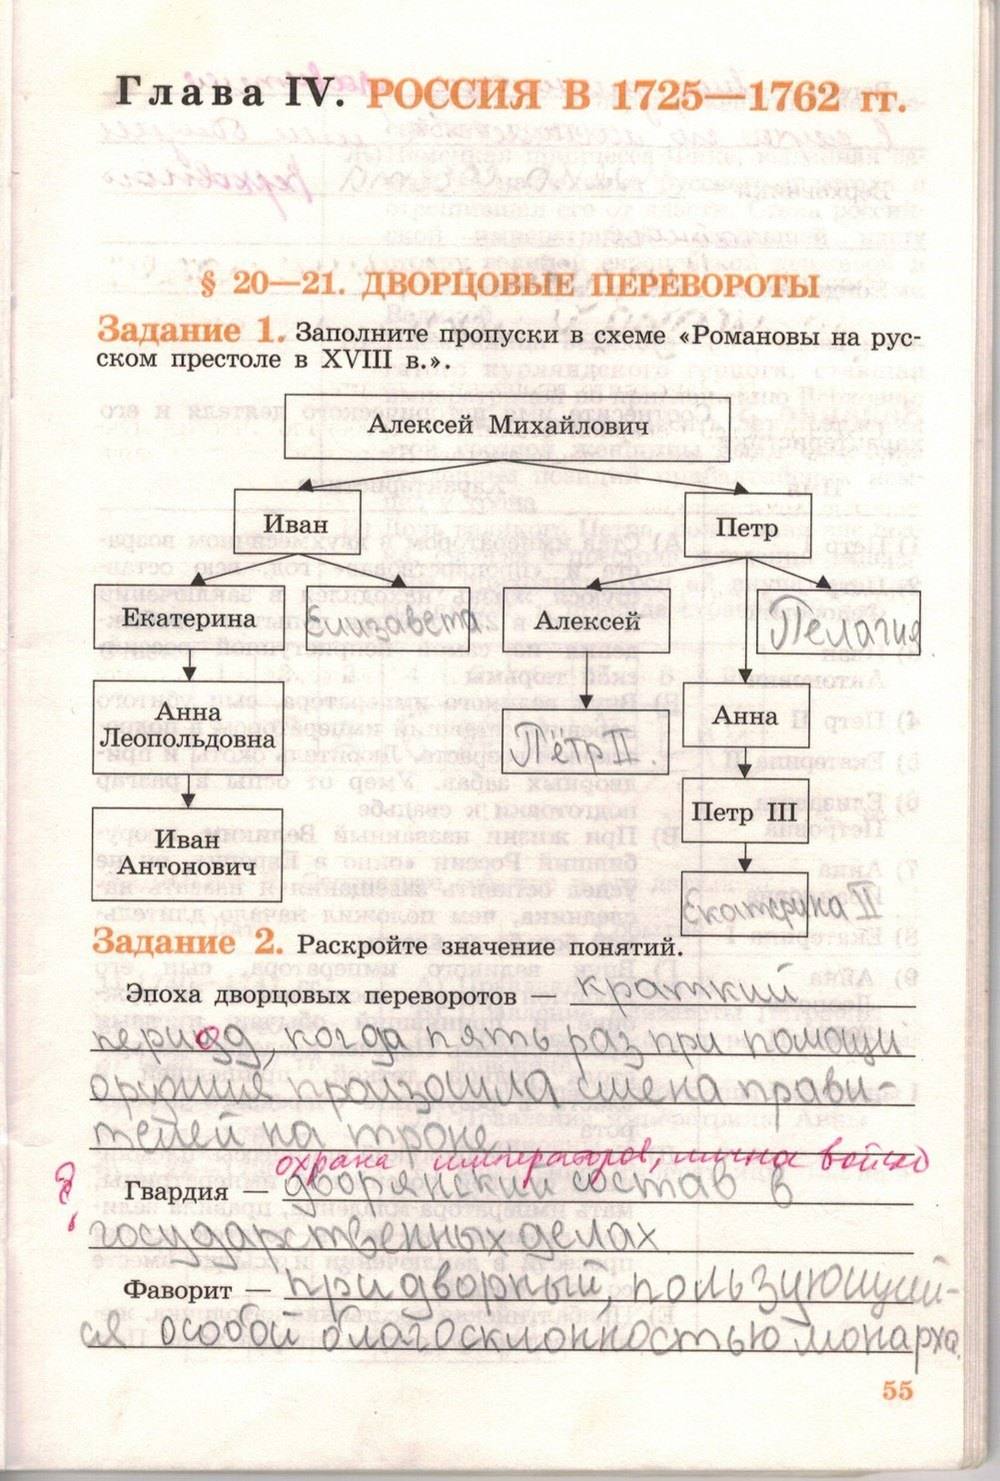 Глава IV. РОССИЯ В 1725—1762 гг.
§ 20—21. ДВОРЦОВЫЕ ПЕРЕВОРОТЫ
Задание 1. Заполните пропуски в схеме «Романовы на рус-
ском престоле в XVIII в.».
Алексей Михайлович
Иван
Петр
Екатерина
Елизавета
Алексей
Пелагия
Анна
Леопольдовна
Пётр II.
Анна
Петр III
Иван
Антонович
Екатерина II
Задание 2. Раскройте значение понятий.
Эпоха дворцовых переворотов — краткий
период, когда пять раз при помощи
орудия произошла смена прави-
телей на троне
охрана императоров, войско
Гвардия — дворянский состав в
государственных делах
Фаворит — придворный, пользующий-
ся особой благосклонностью монарха.
55